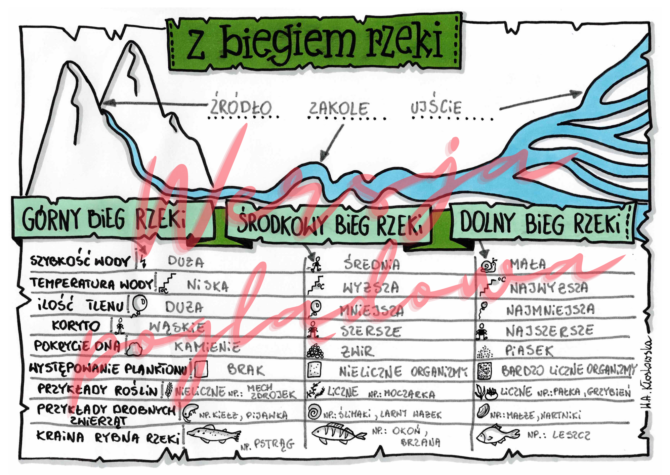 z biegiem rzeki
ŹRÓDŁO ZAKOLE UJŚCIE
GÓRNY BIEG RZEKI ŚRODKOWY BIEG RZEKI DOLNY BIEG RZEKI
SZYBKOŚĆ WODY DUŻA ŚREDNIA MAŁA
TEMPERATURA WODY NISKA WYŻSZA NAJWYŻSZA
ILOŚĆ TLENU DUŻA MNIEJSZA NAJMNIEJSZA
KORYTO WĄSKIE SZERSZE NAJSZERSZE
POKRYCIE DNA KAMIENIE ŻWIR PIASEK
WYSTĘPOWANIE PLANKTONU BRAK NIELICZNE ORGANIZMY BARDZO LICZNE ORGANIZMY
PRZYKŁADY ROŚLIN NIELICZNE NP.: MECH ZDROJEK LICZNE NP.: MOCZARKA LICZNE NP.: PAŁKA, GRZYBIEŃ
PRZYKŁADY DROBNYCH ZWIERZĄT NP. KIEŁŻ, PIJAWKA NP.: ŚLIMAKI, LARWY WAŻEK NP.: MAŁŻE, NARTNIKI
KRAINA RYBNA RZEKI NP. PSTRĄG NP.: OKOŃ, BRZANA NP.: LESZCZ
Wersja
poglądowa